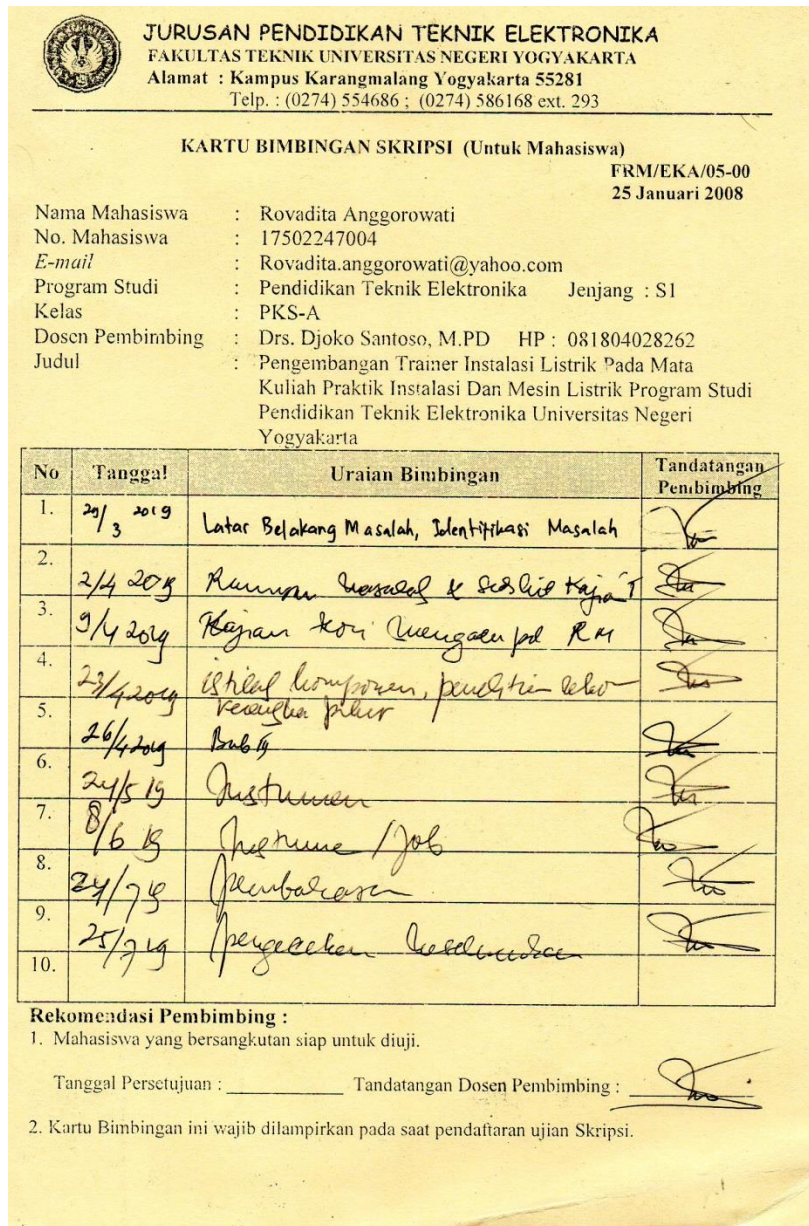 JURUSAN PENDIDIKAN TEKNIK ELEKTRONIKA
FAKULTAS TEKNIK UNIVERSITAS NEGERI YOGYAKARTA
Alamat : Kampus Karangmalang Yogyakarta 55281
Telp. : (0274) 554686 ; (0274) 586168 ext. 293
KARTU BIMBINGAN SKRIPSI (Untuk Mahasiswa)
FRM/EKA/05-00
25 Januari 2008
Nama Mahasiswa : Rovadita Anggorowati
No. Mahasiswa : 17502247004
E-mail : Rovadita.anggorowati@yahoo.com
Program Studi : Pendidikan Teknik Elektronika Jenjang : S1
Kelas : PKS-A
Dosen Pembimbing : Drs. Djoko Santoso, M.PD HP : 081804028262
Judul : Pengembangan Trainer Instalasi Listrik Pada Mata
Kuliah Praktik Instalasi Dan Mesin Listrik Program Studi
Pendidikan Teknik Elektronika Universitas Negeri
Yogyakarta
No Tanggal Uraian Bimbingan Tandatangan
Pembimbing
1. 29/3 2019 Latar Belakang Masalah, Identifikasi Masalah
2. 2/4 2019 & Kajian T
3. 9/4 2019 Kajian mengacu pd RM
4. 23/4 2019 istilah komponen, penelitian
kerangka pikir
5. 26/4 2019 Bab
6. 24/5 19 Instrumen
7. 8/6 19 / Job
8. 24/7 19 pembahasan
9. 25/7 19 pengecekan keseluruhan
10.
Rekomendasi Pembimbing :
1. Mahasiswa yang bersangkutan siap untuk diuji.
Tanggal Persetujuan : Tandatangan Dosen Pembimbing :
2. Kartu Bimbingan ini wajib dilampirkan pada saat pendaftaran ujian Skripsi.